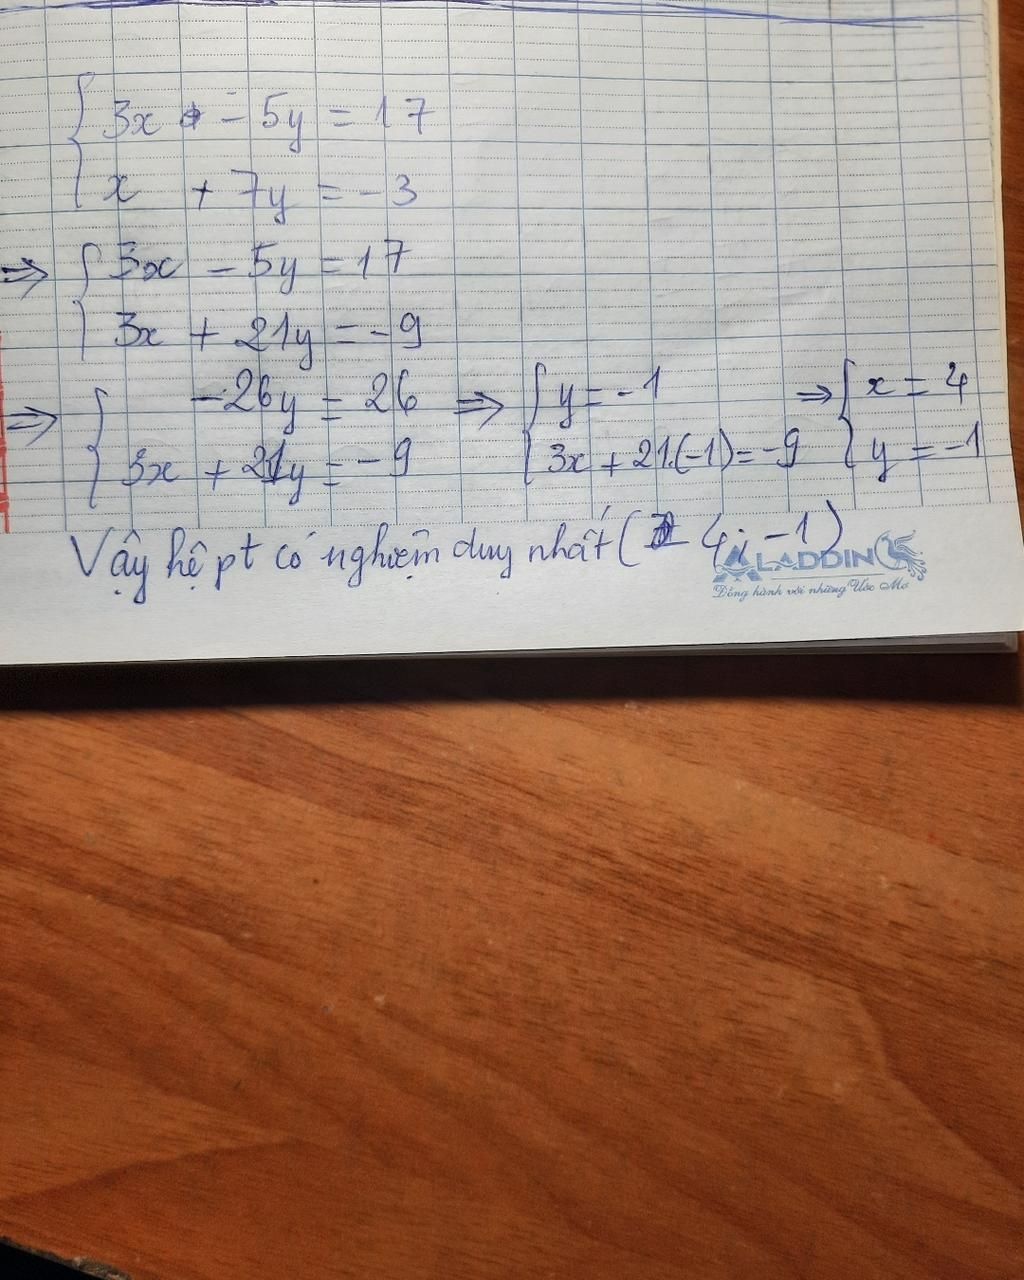 3x - 5y = 17
x + 7y = -3
⇒ 3x - 5y = 17
3x + 21y = -9
⇒ -26y = 26 ⇒ y = -1 ⇒ x = 4
3x + 21y = -9 3x + 21.(-1) = -9 y = -1
Vậy hệ pt có nghiệm duy nhất ( 4; -1)
ALADDIN
Đồng hành với những Ước Mơ